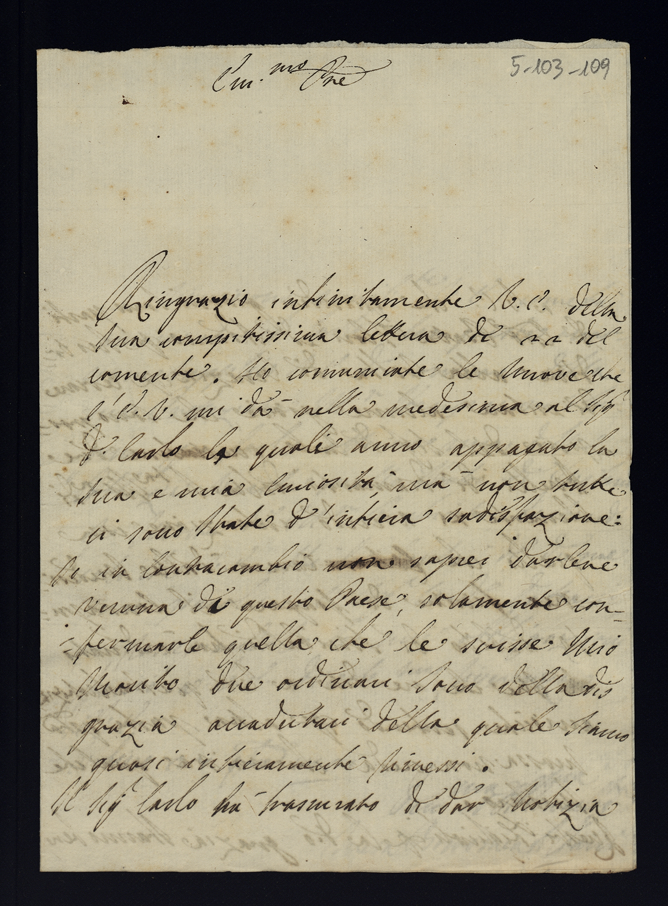 5-103-109
Em.mo Pne
Ringrazio infinitamente V. E. della
sua compitissima lettera di 22 del
corrente. Ho comunicate le nuove che
l'E. V. mi dà nella medesima al Sigr
D. Carlo le quali anno appagato la
sua e mia curiosità, mà non tutte
ci sono state d'intiera sadisfazione:
Io in contracambio non saprei darlene
veruna di questo Paese, solamente con-
fermarle quella che le scrisse mio
Marito due ordinari sono della dis
grazia accadutaci della quale siamo
quasi intieramente rimessi.
Il Sigr Carlo hà trascurato di dar notizia